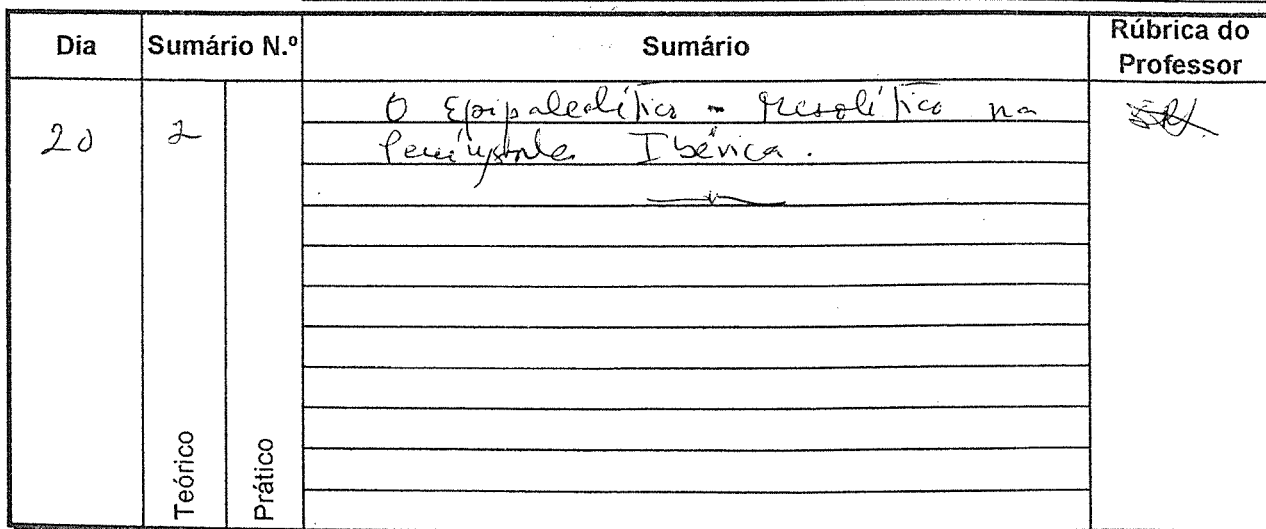 Dia Sumário N.º Sumário Rúbrica do Professor
20 2 O Epipaleolítico - Mesolítico na
Península Ibérica.
Teórico Prático